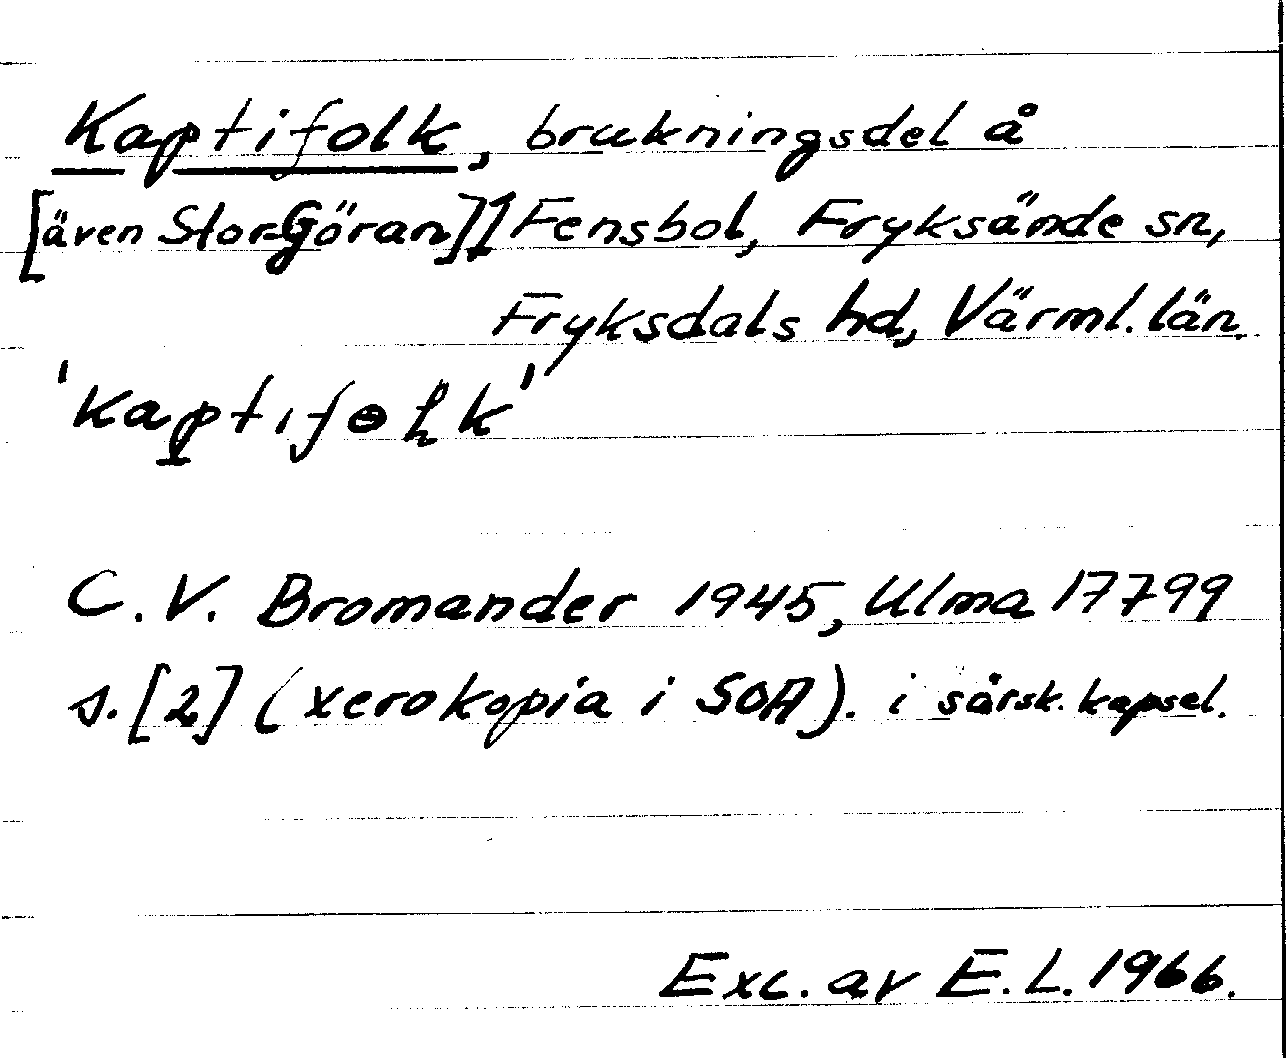 Kaptifolk, brukningsdel å
[även Stor-Göran] 1 Fensbol, Fryksände sn,
Fryksdals hd, Värml. län.
'kaptifɵɫk'
C. V. Bromander 1945, Ulma 17799
s. [2] (xerokopia i SOA). i särsk. kapsel.
Exc. av E. L. 1966.